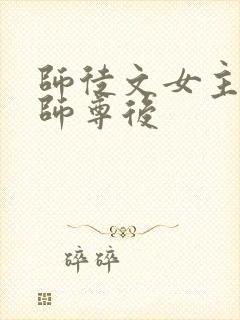 師徒文女主
師尊後
碎碎